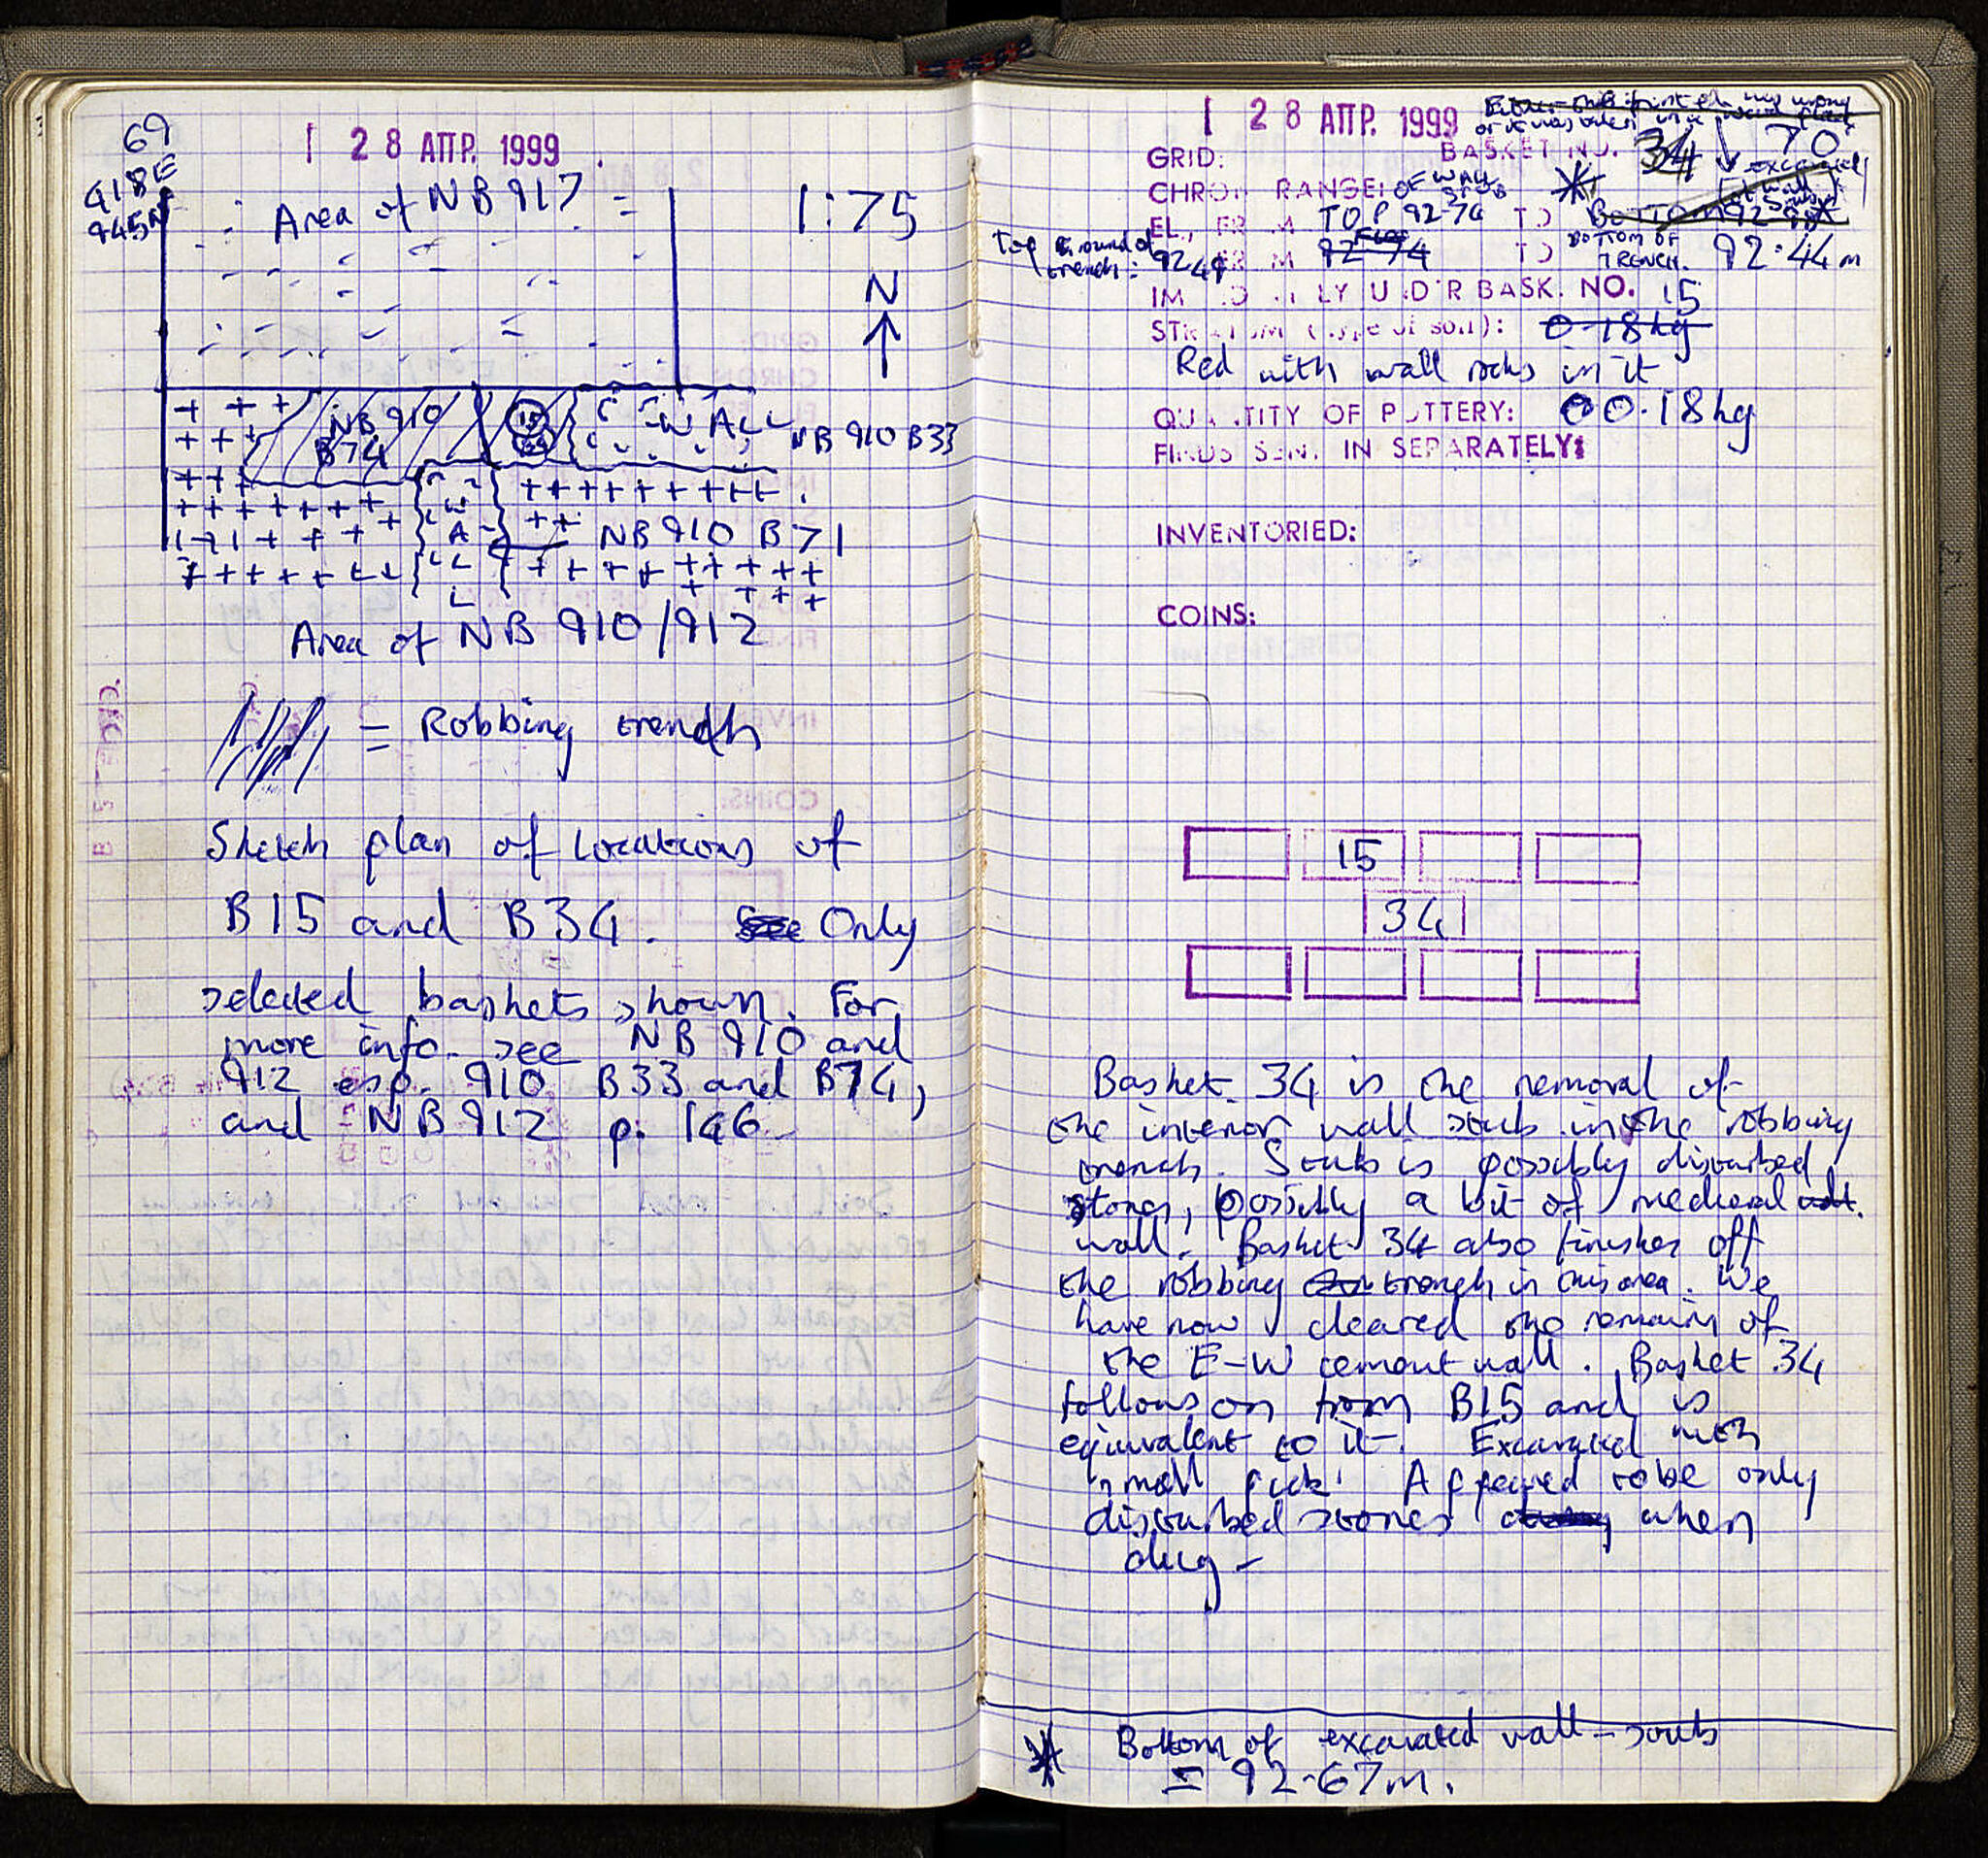 69
28 ΑΠΡ. 1999
918E
945N
Area of NB 917
1:75
N
NB 910
B74
15
34
WALL
NB 910 B33
W
A
L
L
NB 910 B71
Area of NB 910/912
= Robbing trench
Sketch plan of locations of
B15 and B34. See Only
selected baskets shown. For
more info. see NB 910 and
912 esp. 910 B33 and B74,
and NB 912 p. 146
28 ΑΠΡ. 1999
Either this point el. was wrong
or it was taken in a weird place
70
GRID:
BASKET NO. 34
excavated
CHRON RANGE: OF WALL STUB
EL., FROM TOP 92-74 TO BOTTOM 92-
Top ground of trench = 92.49
FROM 92-74 TO BOTTOM OF TRENCH. 92.44m
IMMEDIATELY UNDER BASK. NO. 15
STRATUM (type of soil): 0.18kg
Red with wall rocks in it
QUANTITY OF POTTERY: 00.18kg
FINDS SENT IN SEPARATELY:
INVENTORIED:
COINS:
15
34
Basket 34 is the removal of
the interior wall stub in the robbing
trench. Stub is possibly disturbed
stones, possibly a bit of medieval
wall. Basket 34 also finishes off
the robbing trench in this area. We
have now cleared the remains of
the E-W cement wall. Basket 34
follows on from B15 and is
equivalent to it. Excavated with
small pick. Appeared to be only
disturbed stones when
dug -
* Bottom of excavated wall-stub
= 92.67m.